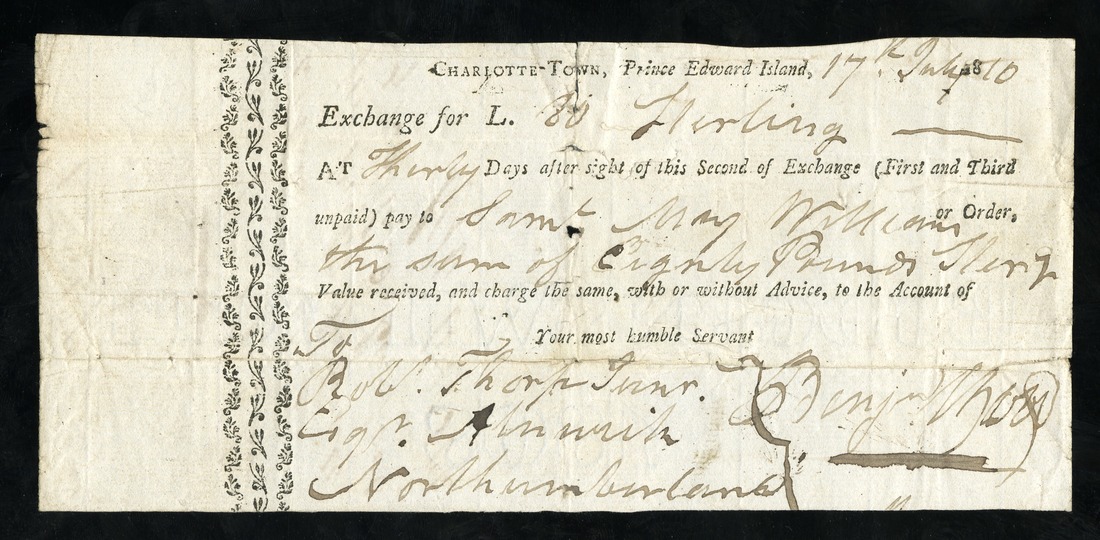 CHARLOTTE-TOWN, Prince Edward Island, 17th July 1810
Exchange for L. 80 Sterling
AT Thirty Days after sight of this Second of Exchange (First and Third
unpaid) pay to Saml May William or Order,
the sum of Eighty Pounds Sterg
Value received, and charge the same, with or without Advice, to the Account of
Your most humble Servant
To
Robt. Thorp Junr. Benjn
Esqr. Alnwick
Northumberland